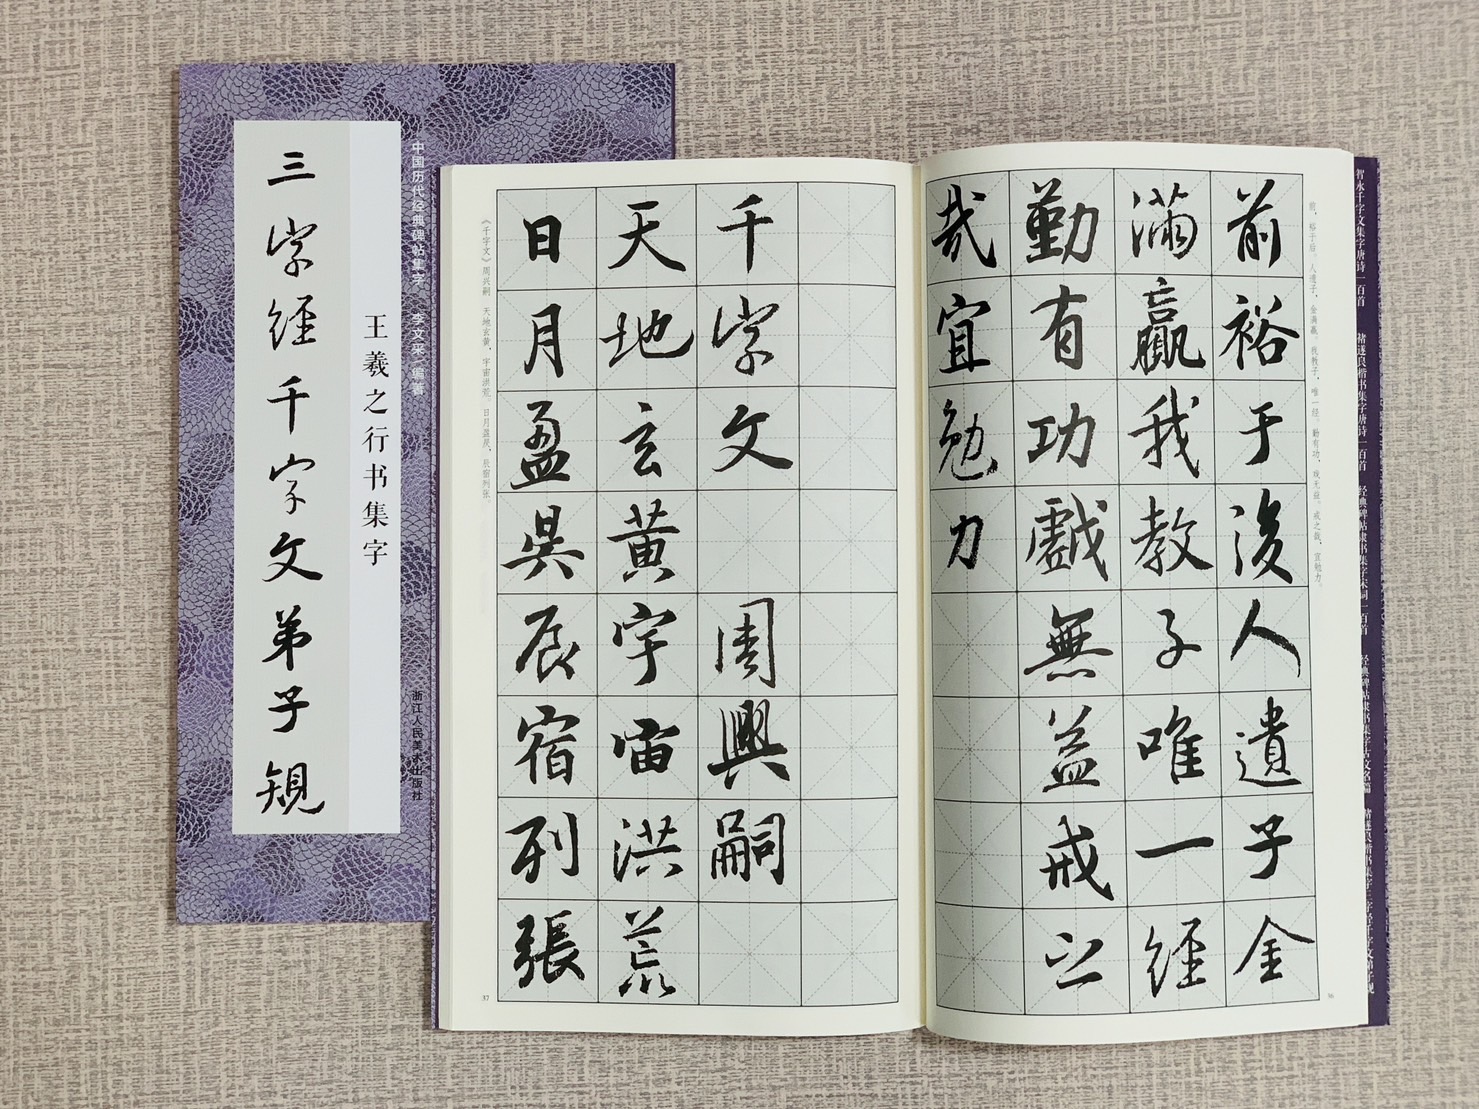 三字经千字文弟子规
王羲之行书集字
中国历代经典碑帖集字 李文采 编著
浙江人民美术出版社
前裕于後人遺子金
滿贏我教子唯一經
勤有功戲無益戒之
哉宜勉力
前，裕于后。人遗子，金满赢。我教子，唯一经。勤有功，戏无益。戒之哉，宜勉力。
36
千字文 周興嗣
天地玄黃宇宙洪荒
日月盈昃辰宿列張
《千字文》周兴嗣 天地玄黄，宇宙洪荒。日月盈昃，辰宿列张。
37
智永千字文集字唐诗一百首
褚遂良楷书集字唐诗一百首
经典碑帖隶书集字宋词一百首